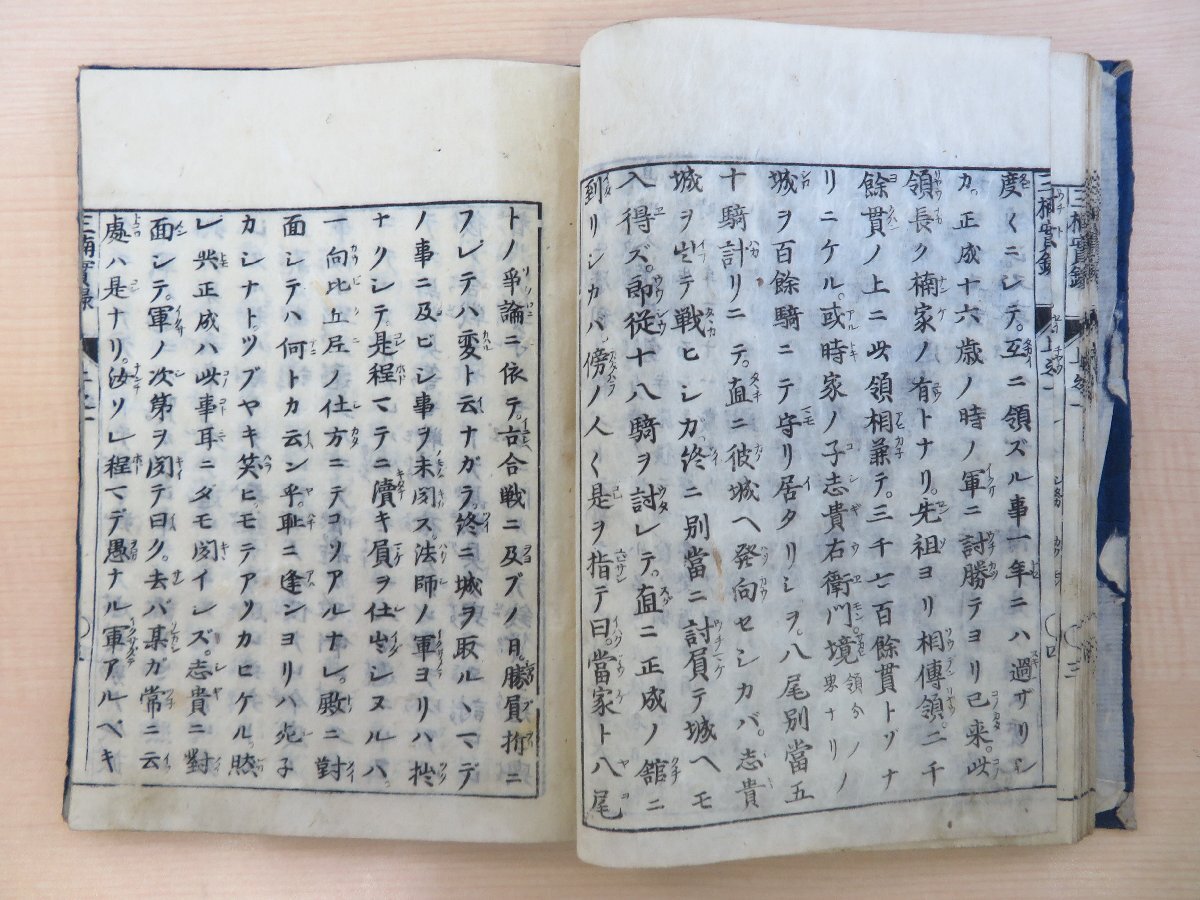 三楠實録
度〱ニシテ。互ニ領ズル事一年ニハ過ザリシ
カ。正成十六歳ノ時ノ軍ニ討勝テヨリ已来。此
領長ク楠家ノ有トナリ。先祖ヨリ相傳領。二千
餘貫ノ上ニ此領相兼テ。三千七百餘貫トゾナ
リニケル。或時家ノ子志貴右衛門境領分ノ界ナリノ
城ヲ百餘騎ニテ守リ居タリシヲ。八尾別當五
十騎計リニテ。直ニ彼城ヘ発向セシカバ。志貴
城ヲ出テ戦ヒシカ終ニ別當ニ討負テ城ヘモ
入得ズ。郎従十八騎ヲ討レテ。直ニ正成ノ舘ニ
到リシカハ。傍ノ人〱是ヲ指テ曰。當家ト八尾
トノ爭論ニ依テ。古合戦ニ及ブノ月。勝負拵ニ
フレテハ変ト云ナガラ。終ニ城ヲ取ルヽマデ
ノ事ニ及ヒシ事ヲ未聞ス。法師ノ軍ヨリハ拙
ナクシテ。是程マテニ瀆キ負ヲ仕出シヌルハ。
一向比丘尼ノ仕方ニテコソアルナレ。殿ニ對
面シテハ何トカ云ン乎。恥ニ逢ンヨリハ死子
カシナト。ツブヤキ笑ヒ。モテアツカヒケル。然
レ共正成ハ此事耳ニダモ聞イレズ。志貴ニ對
面シテ。軍ノ次第ヲ聞テ曰ク。去バ某ガ常ニ云
處ハ是ナリ。汝ソレ程マデ愚ナル軍アルベキ